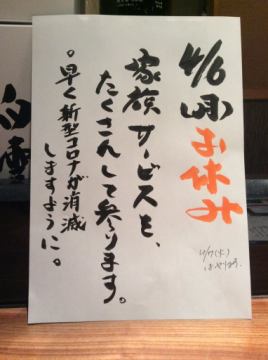 4/6(月)お休み
家族サービスを、
たくさんして参ります。
。早く新型コロナが消滅
しますように。
4/7(火)
はやります。
白雪